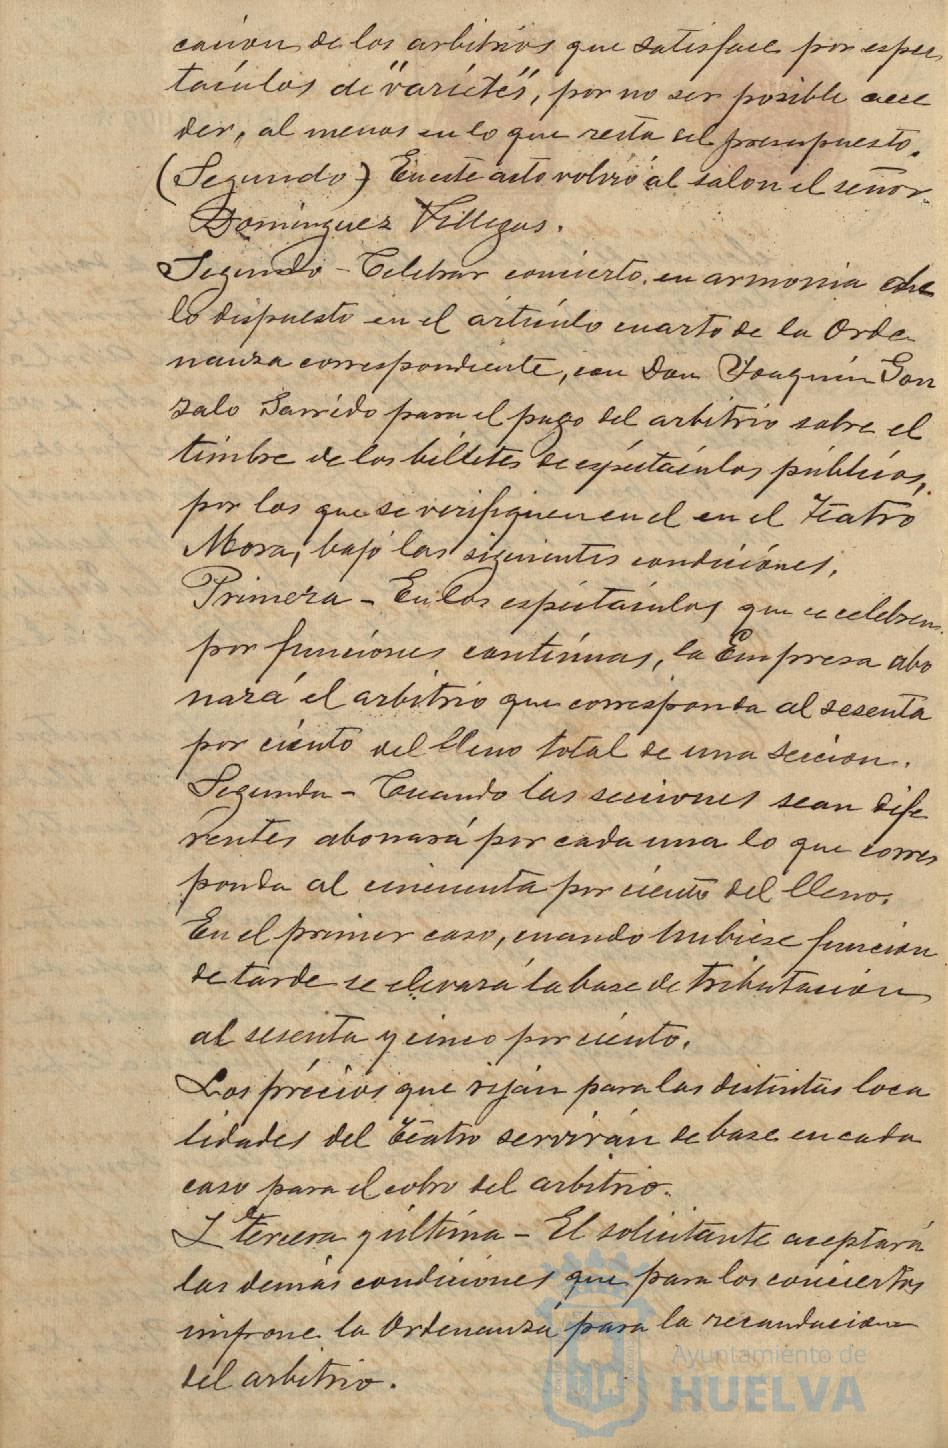 cación de los arbitrios que satisface por espec
táculos de "varietés", por no ser posible acce
der, al menos en lo que resta del presupuesto.
(Segundo) En este acto volvió al salon el señor
Domínguez Villegas.
Segundo - Celebrar concierto, en armonia de
lo dispuesto en el artículo cuarto de la Orde
nanza correspondiente, con Don Joaquín Gon
zalo Garrido para el pago del arbitrio sobre el
timbre de los billetes de espectáculos públicos,
por los que se verifiquen en el en el Teatro
Mora, bajo las siguientes condiciones.
Primera - En los espectáculos que se celebren
por funciones contínuas, la Empresa abo
nará el arbitrio que corresponda al sesenta
por ciento del lleno total de una seccion.
Segunda - Cuando las secciones sean dife
rentes abonará por cada una lo que corres
ponda al cincuenta por ciento del lleno.
En el primer caso, cuando hubiese funcion
de tarde se elevará la base de tributación
al sesenta y cinco por ciento.
Los précios que rijan para las distintas loca
lidades del Teatro servirán de base en cada
caso para el cobro del arbitrio.
Y tercera y última - El solicitante aceptará
las demás condiciones que para los conciertos
impone la Ordenanza para la recaudacion
del arbitrio.
Ayuntamiento de
HUELVA